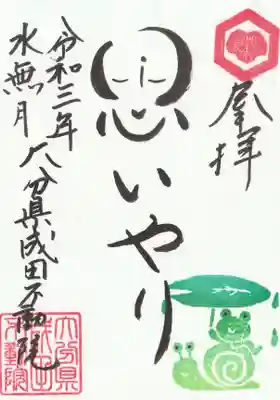 奉拝
思いやり
令和三年
水無月 大分県成田不動院
大分県
成田山
不動院